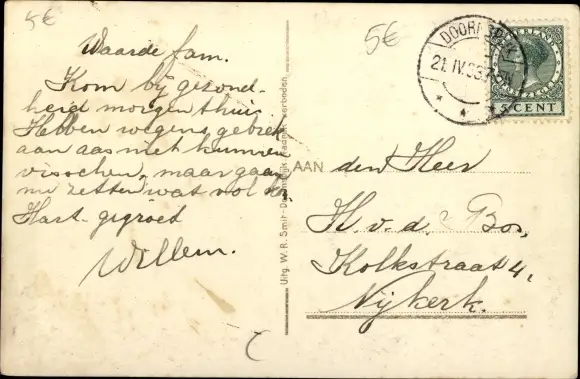 5€
5€
Waarde fam.
Kom bij gezond-
heid morgen thuis
Hebben wegens gebrek
aan aas niet kunnen
visschen, maar gaan
nu zetten wat vol
Hart-gegroet
Willem.
AAN den Heer
H. v. d. Bos,
Kolkstraat 4,
Nijkerk.
DOORNSPIJK
21.IV.33
NEDERLAND
5 CENT
Uitg. W. R. Smit-Doornspijk Nadruk verboden